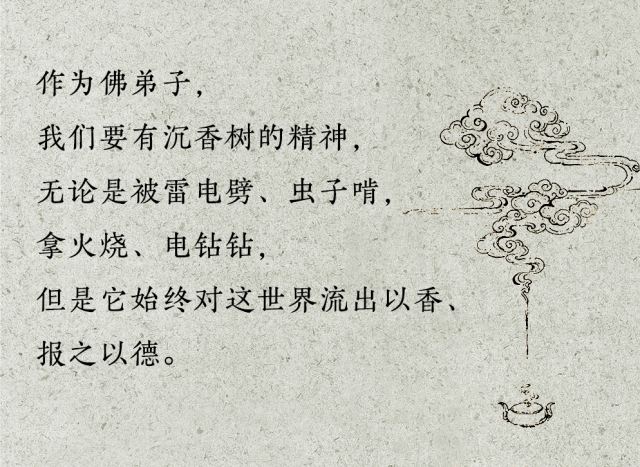 作为佛弟子，
我们要有沉香树的精神，
无论是被雷电劈、虫子啃，
拿火烧、电钻钻，
但是它始终对这世界流出以香、
报之以德。